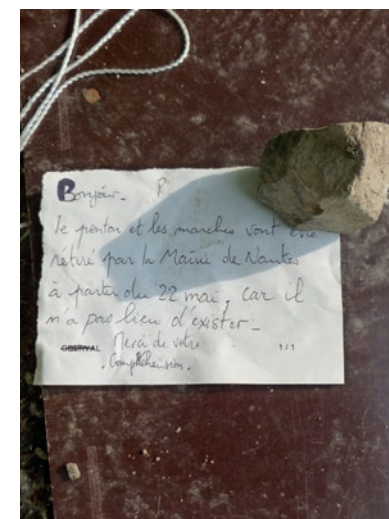 Bonjour_
le ponton et les marches vont être
rétiré par la Mairie de Nantes
à partir du 22 mai, car il
n'a pas lieu d'exister_
OBERVAL Merci de votre 1 / 1
. Compréhension.